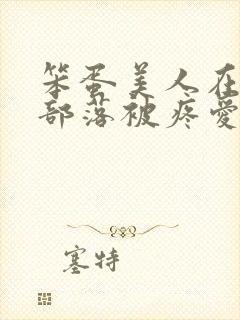 笨蛋美人在
部落被疼爱
塞特